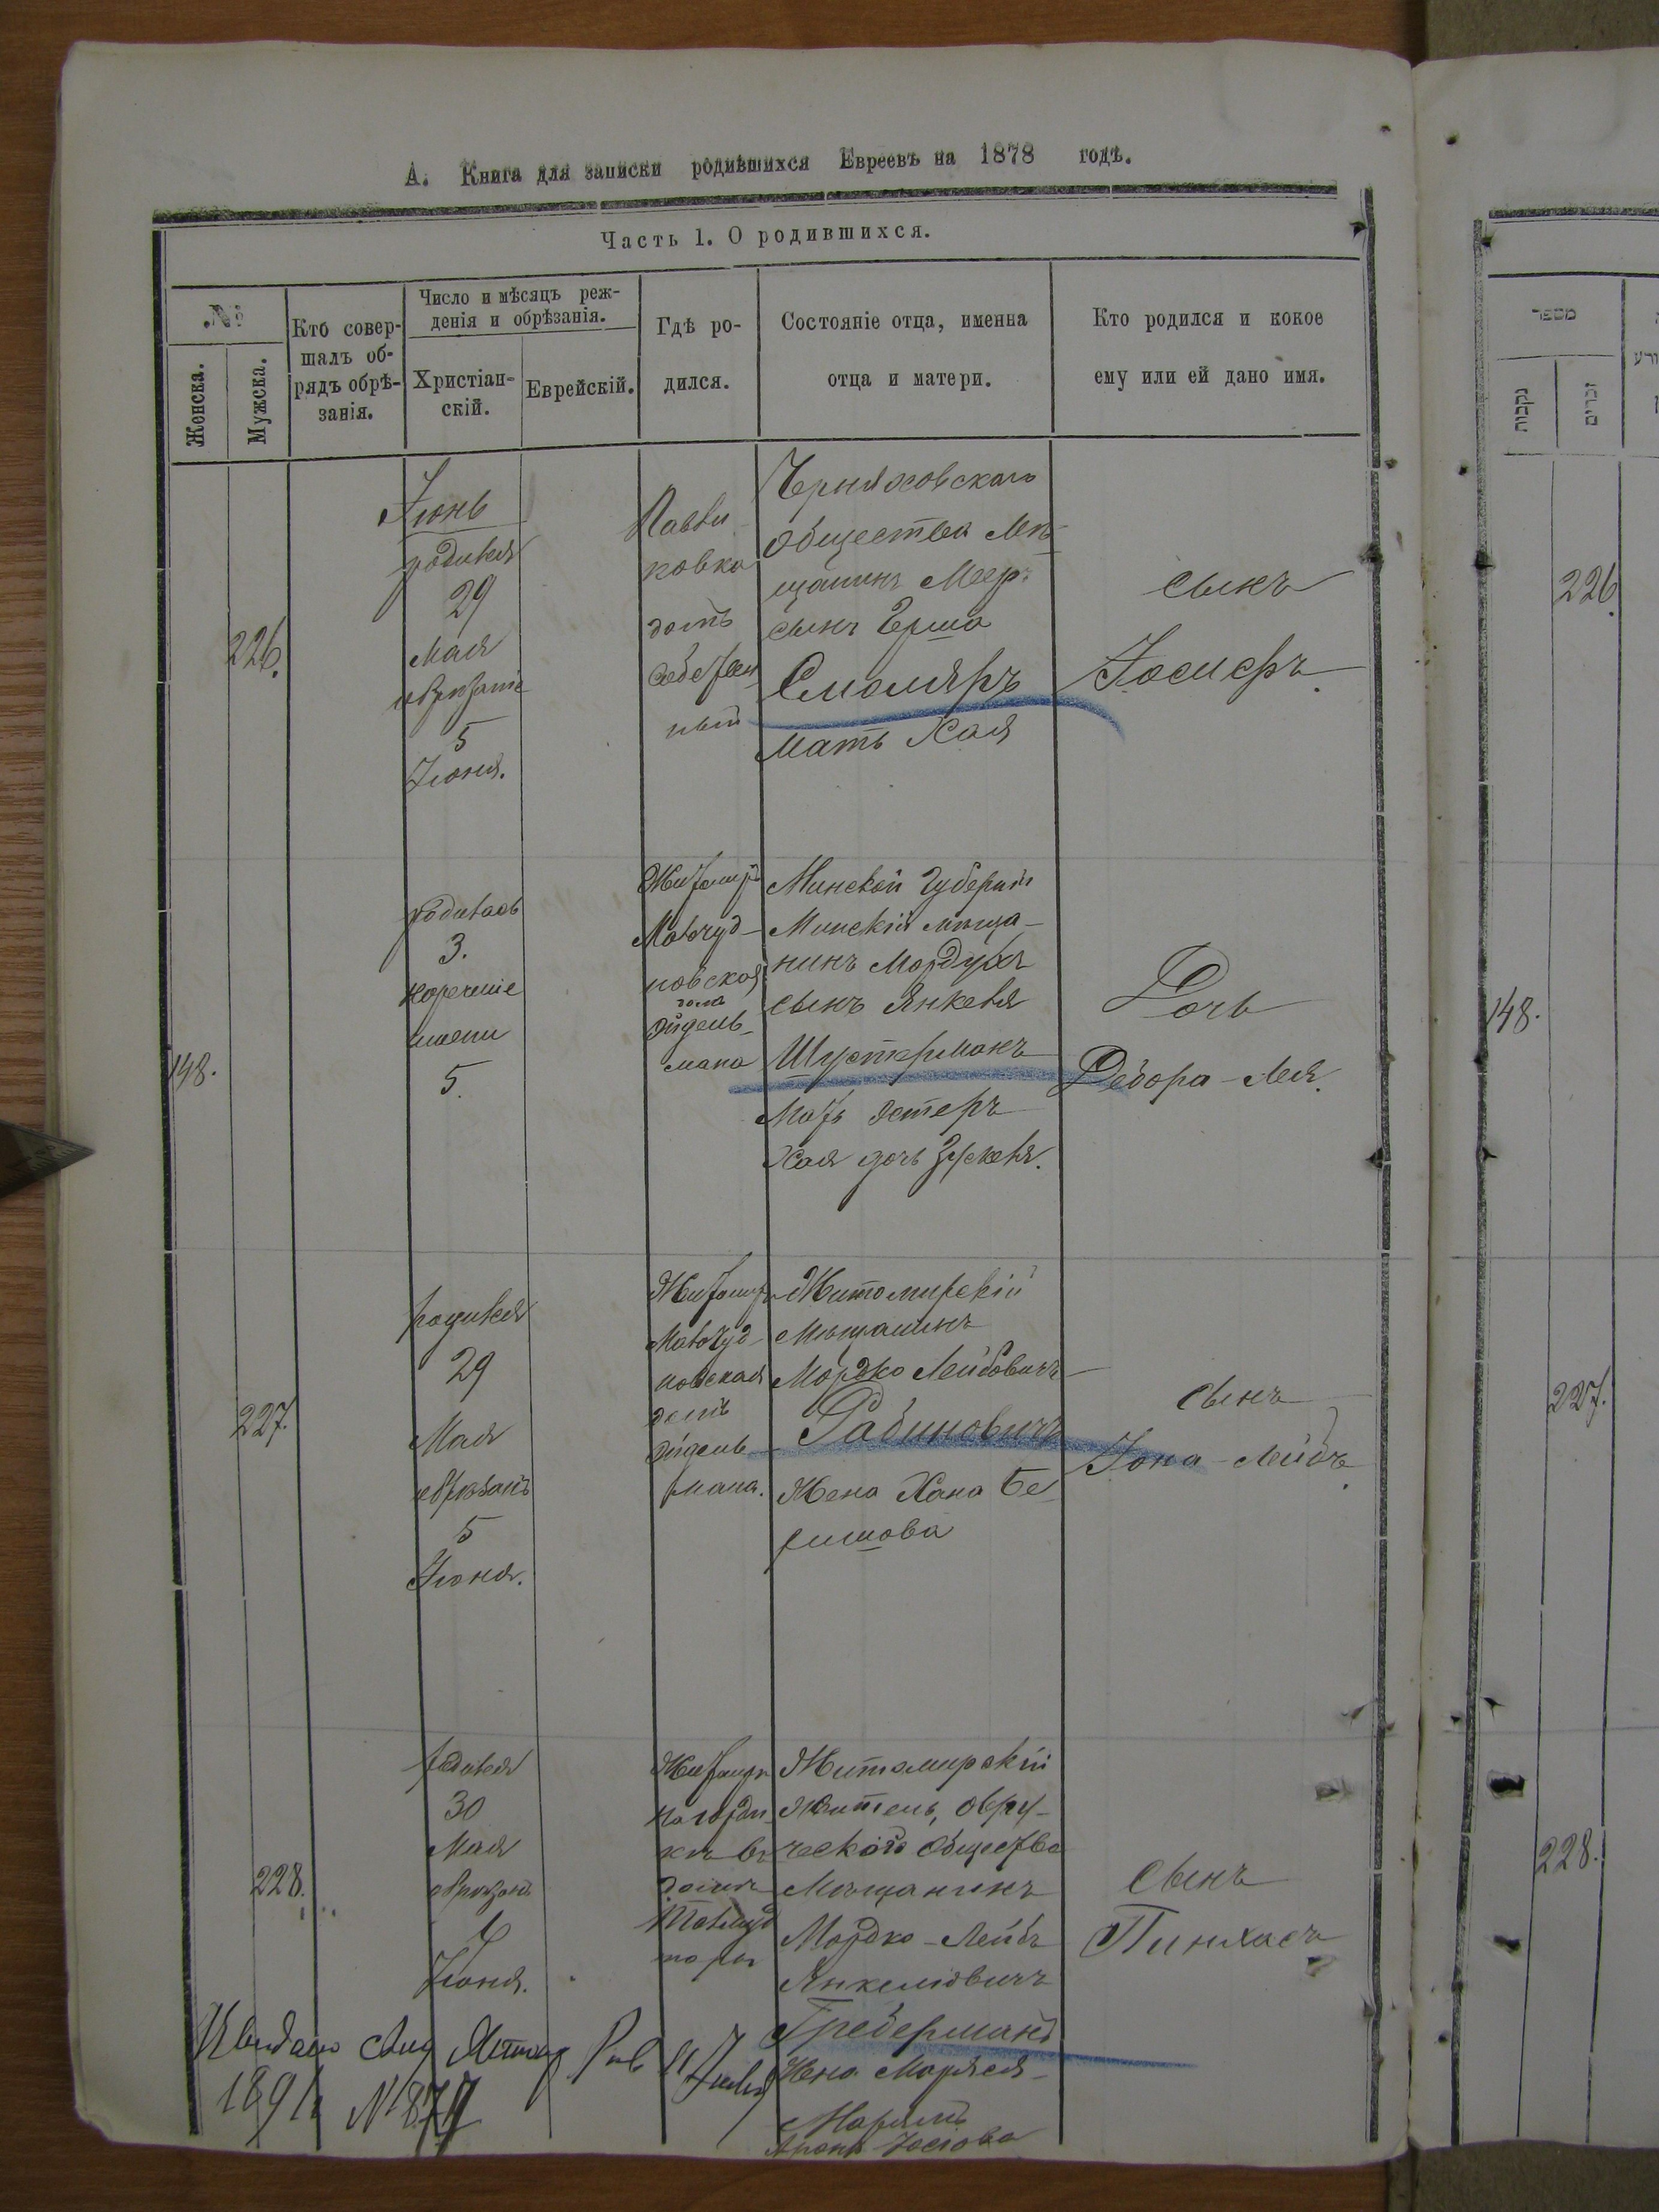 А. Книга для записки родившихся Евреевъ на 1878 годѣ.
Часть 1. О родившихся.
№
Женска.
Мужска.
Кто совер-
шалъ об-
рядъ обрѣ-
занія.
Число и мѣсяцъ реж-
денія и обрѣзанія.
Христіан-
скій.
Еврейскій.
Гдѣ ро-
дился.
Состояніе отца, имена
отца и матери.
Кто родился и кокое
ему или ей дано имя.
226.
Іюнь
родился
29
Мая
обрѣзаніе
5
Іюня.
ковка
домъ
Черняховскаго
общества Мѣ-
щанинъ Меер
сынъ Герша
Смоляръ
мать Хая
сынъ
Іосифъ.
148.
родилась
3.
нареченіе
имени
5.
Житомир
новская
дома
Эйдель-
мана
Минской Губерніи
Минскій мѣща-
нинъ Мордухъ
сынъ Янкеля
Шустерманъ
Мать Эстеръ
Хая дочь
Дочь
Дебора-Лея.
227.
родился
29
Мая
обрѣзанъ
5
Іюня.
Житомиръ
новская
домъ
Эйдель
мана.
Житомирскій
Мѣщанинъ
Мордко Лейбовичъ
Рабиновичъ
Жена Хана Бе
ришова
сынъ
Іона-Лейбъ.
228.
родился
30
Мая
обрѣзанъ
6
Іюня.
Житомиръ
въ
домѣ
Талмуд
торы
Житомирскій
житель, Овру-
ческаго общества
Мѣщанинъ
Мордко-Лейбъ
Янкелювичъ
Гребермань
Жена Маряся-
Маріямъ
Іосіова
сынъ
Пинхасъ
1891 №
מספר
נקבות
זכרים
226.
148.
227.
228.